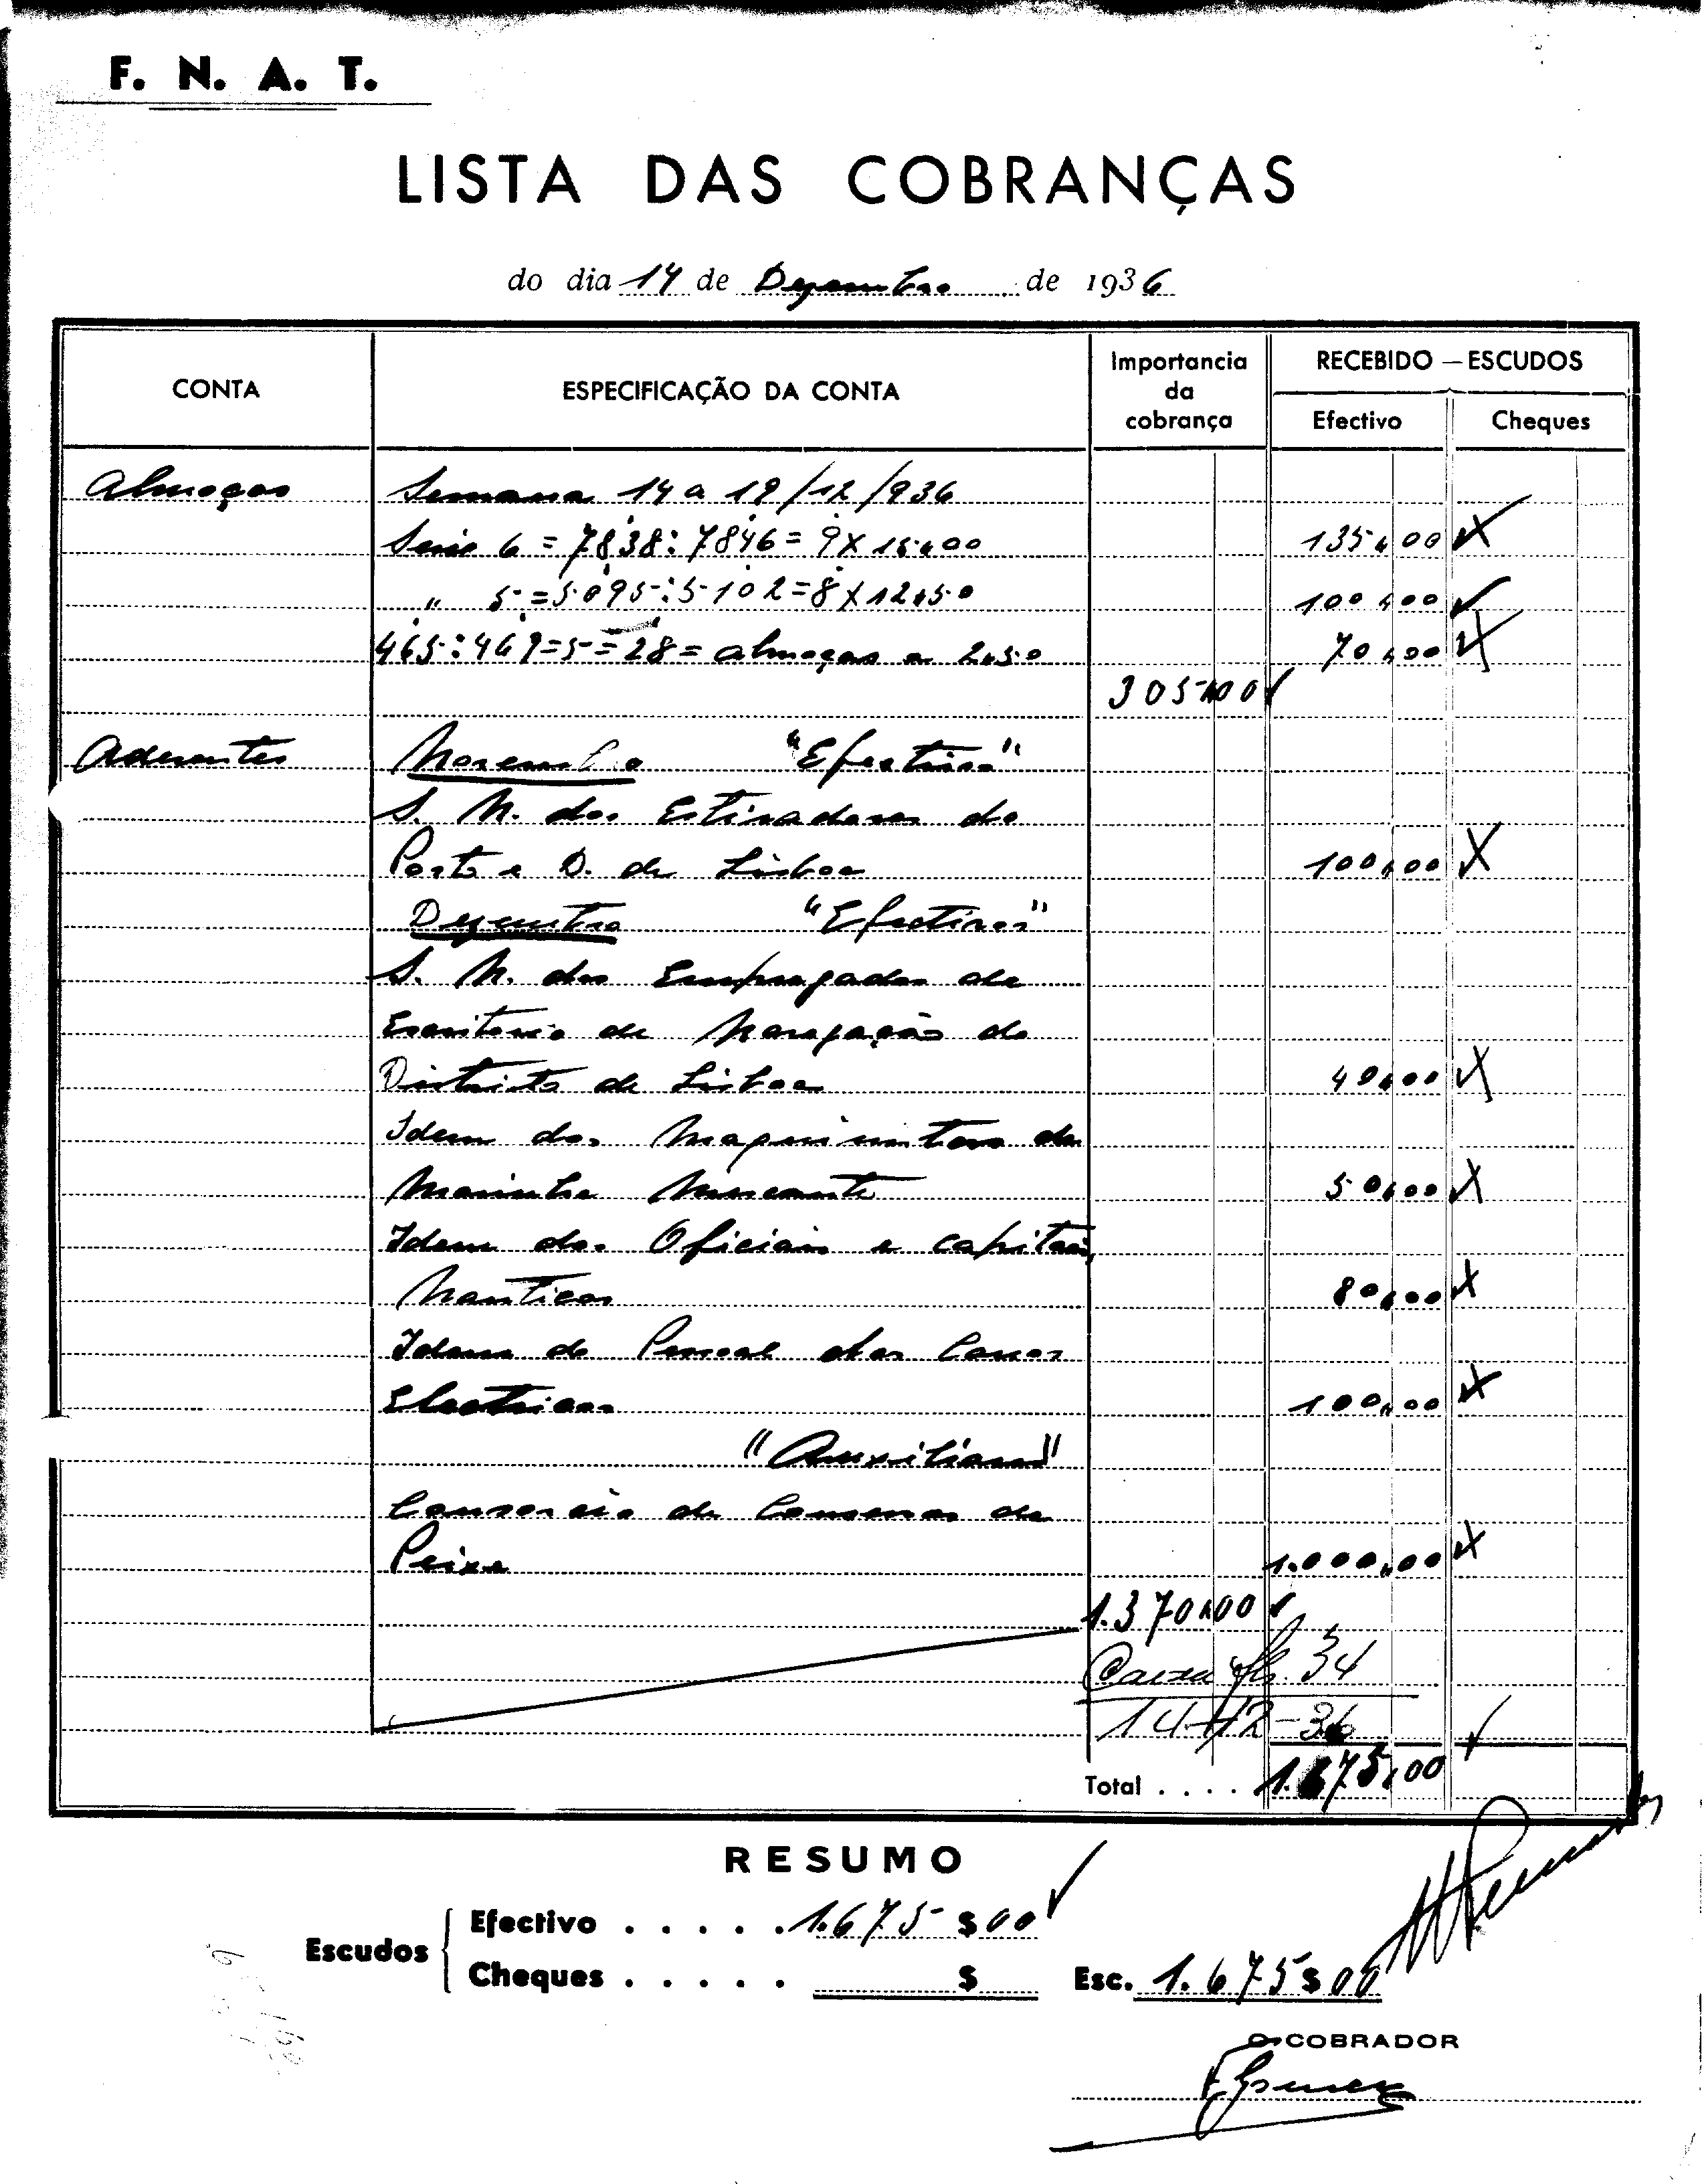 F. N. A. T.
LISTA DAS COBRANÇAS
do dia 14 de Dezembro de 1936
CONTA
ESPECIFICAÇÃO DA CONTA
Importancia da cobrança
RECEBIDO — ESCUDOS
Efectivo
Cheques
Almoços Semana 14 a 19/12/936
Serie 6 = 7838: 7846 = 9 X 15$00 135$00
" 5 = 5.095: 5.102 = 8 X 12$50 100$00
465: 469 = 5 = 28 = almoços a 2$50 70$00
305$00
Aderentes Novembro "Efectivos"
S. N. dos Estivadores do
Porto e D. de Lisboa 100$00
Dezembro "Efectivos"
S. N. dos Empregados de
Escritorio de Navegação do
Distrito de Lisboa 40$00
Idem dos Maquinistas da
Marinha Mercante 50$00
Idem dos Oficiais e capitães
Nauticos 80$00
Idem do Pessoal dos Carros
Electricos 100$00
"Auxiliares"
Consorcio de Conservas de
Peixe 1.000$00
1.370$00
Caixa fls. 34
14-12-36
Total . . . . 1.675$00
RESUMO
Escudos
Efectivo . . . . . 1.675$00
Cheques . . . . . $
Esc. 1.675$00
O COBRADOR